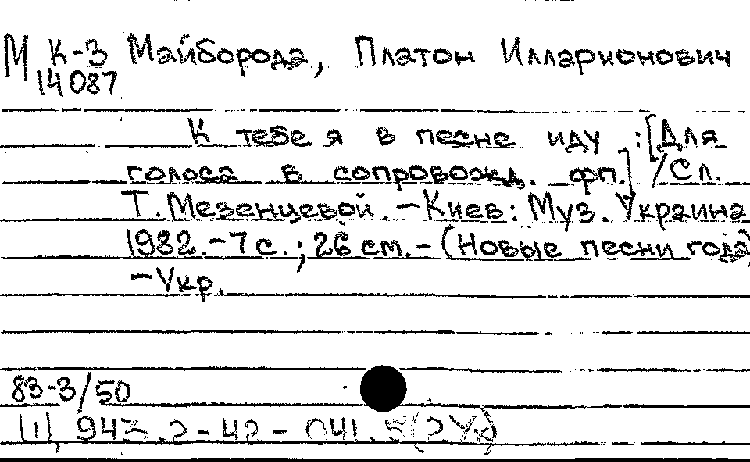 М К-3 Майборода, Платон Илларионович
14087
К тебе я в песне иду :[Для
голоса в сопровожд. фп.] /Сл.
Т. Мезенцевой. -Киев: Муз. Украина
1982.-7 с.; 26 см.-(Новые песни года)
-Укр.
83-3/50
943.2-42-041.5(2Ук)